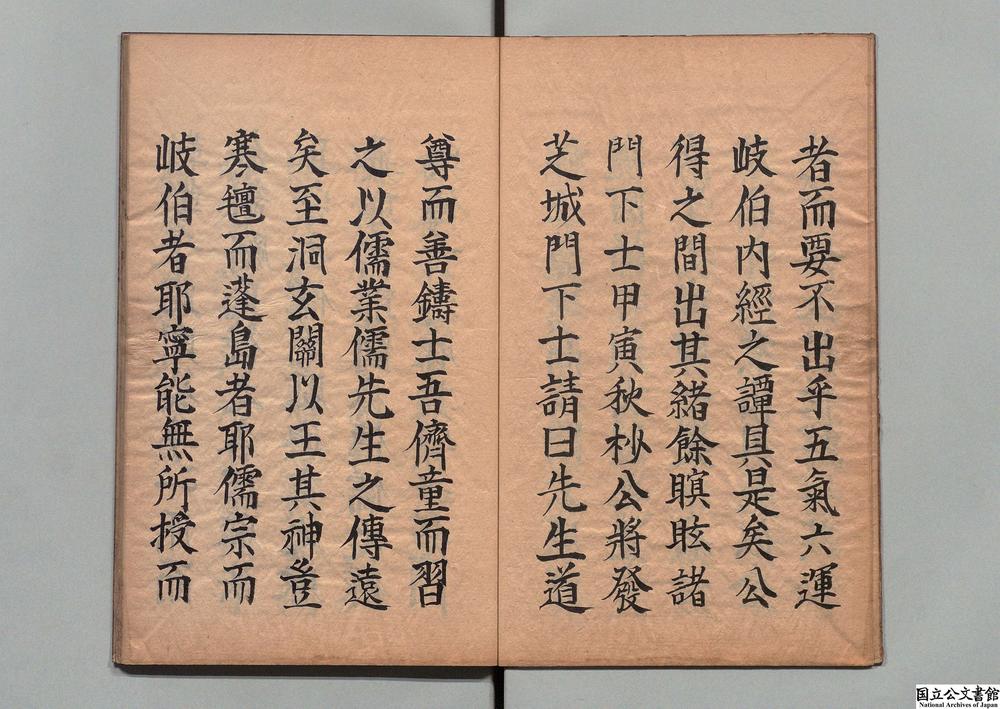 者而要不出乎五氣六運
岐伯內經之譚具是矣公
得之間出其緒餘瞑眩諸
門下士甲寅秋杪公將發
芝城門下士請曰先生道
尊而善鑄士吾儕童而習
之以儒業儒先生之傳遠
矣至洞玄關以王其神豈
寒氊而蓬島者耶儒宗而
岐伯者耶寧能無所授而
国立公文書館
National Archives of Japan